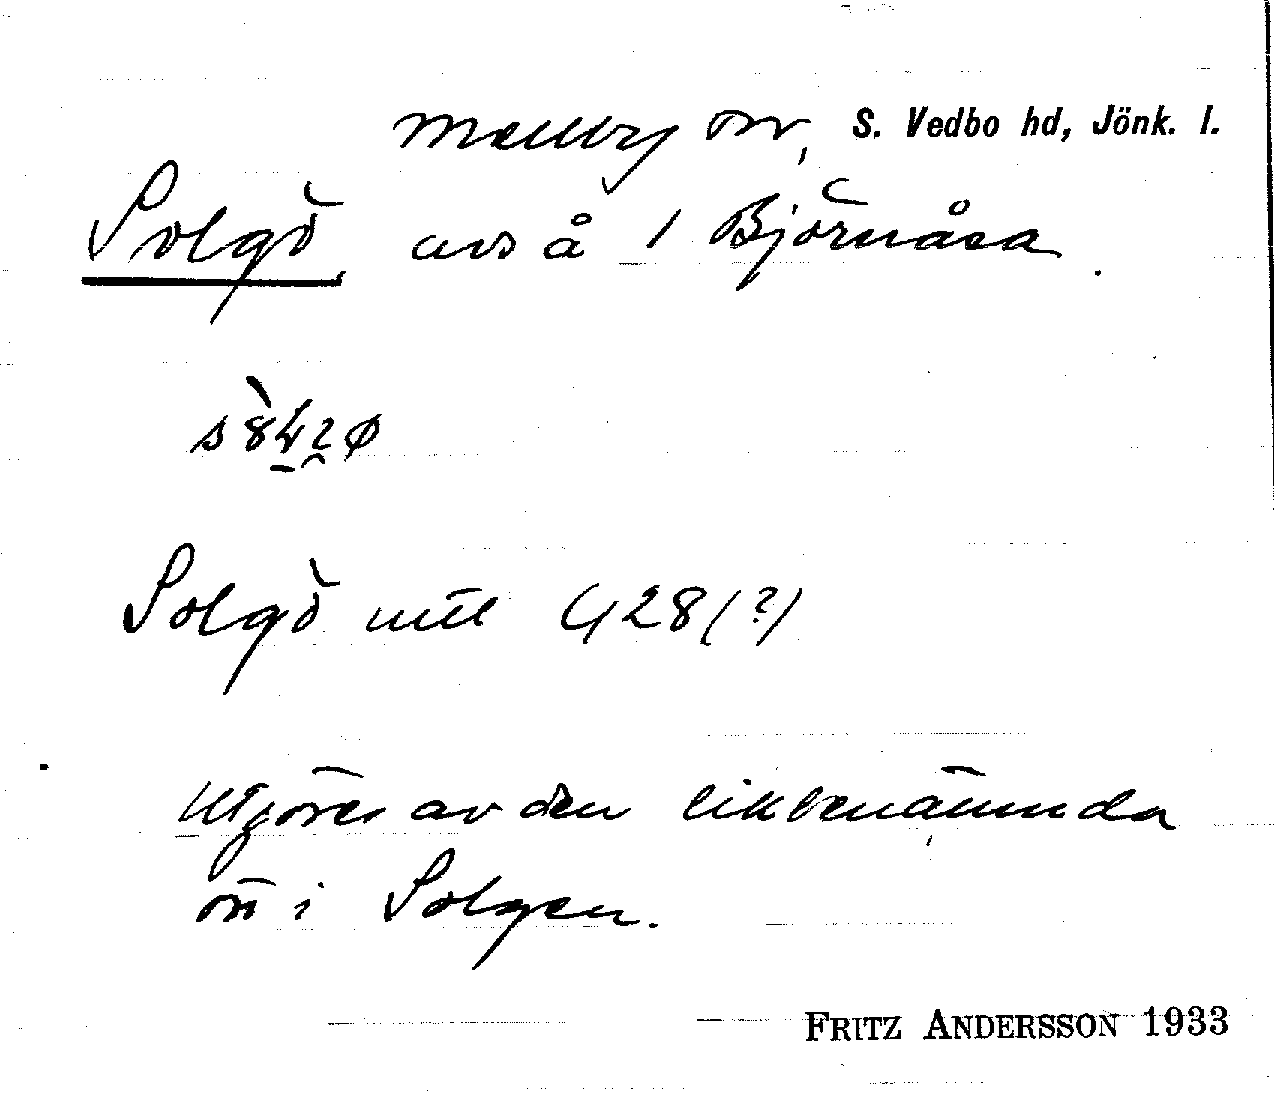 Mellby sn, S. Vedbo hd, Jönk. l.
Solgö avs å 1 Björnåsa.
Solgö utl 428 (?)
Utgöres av den likbenämnda
ön i Solgen.
FRITZ ANDERSSON 1933